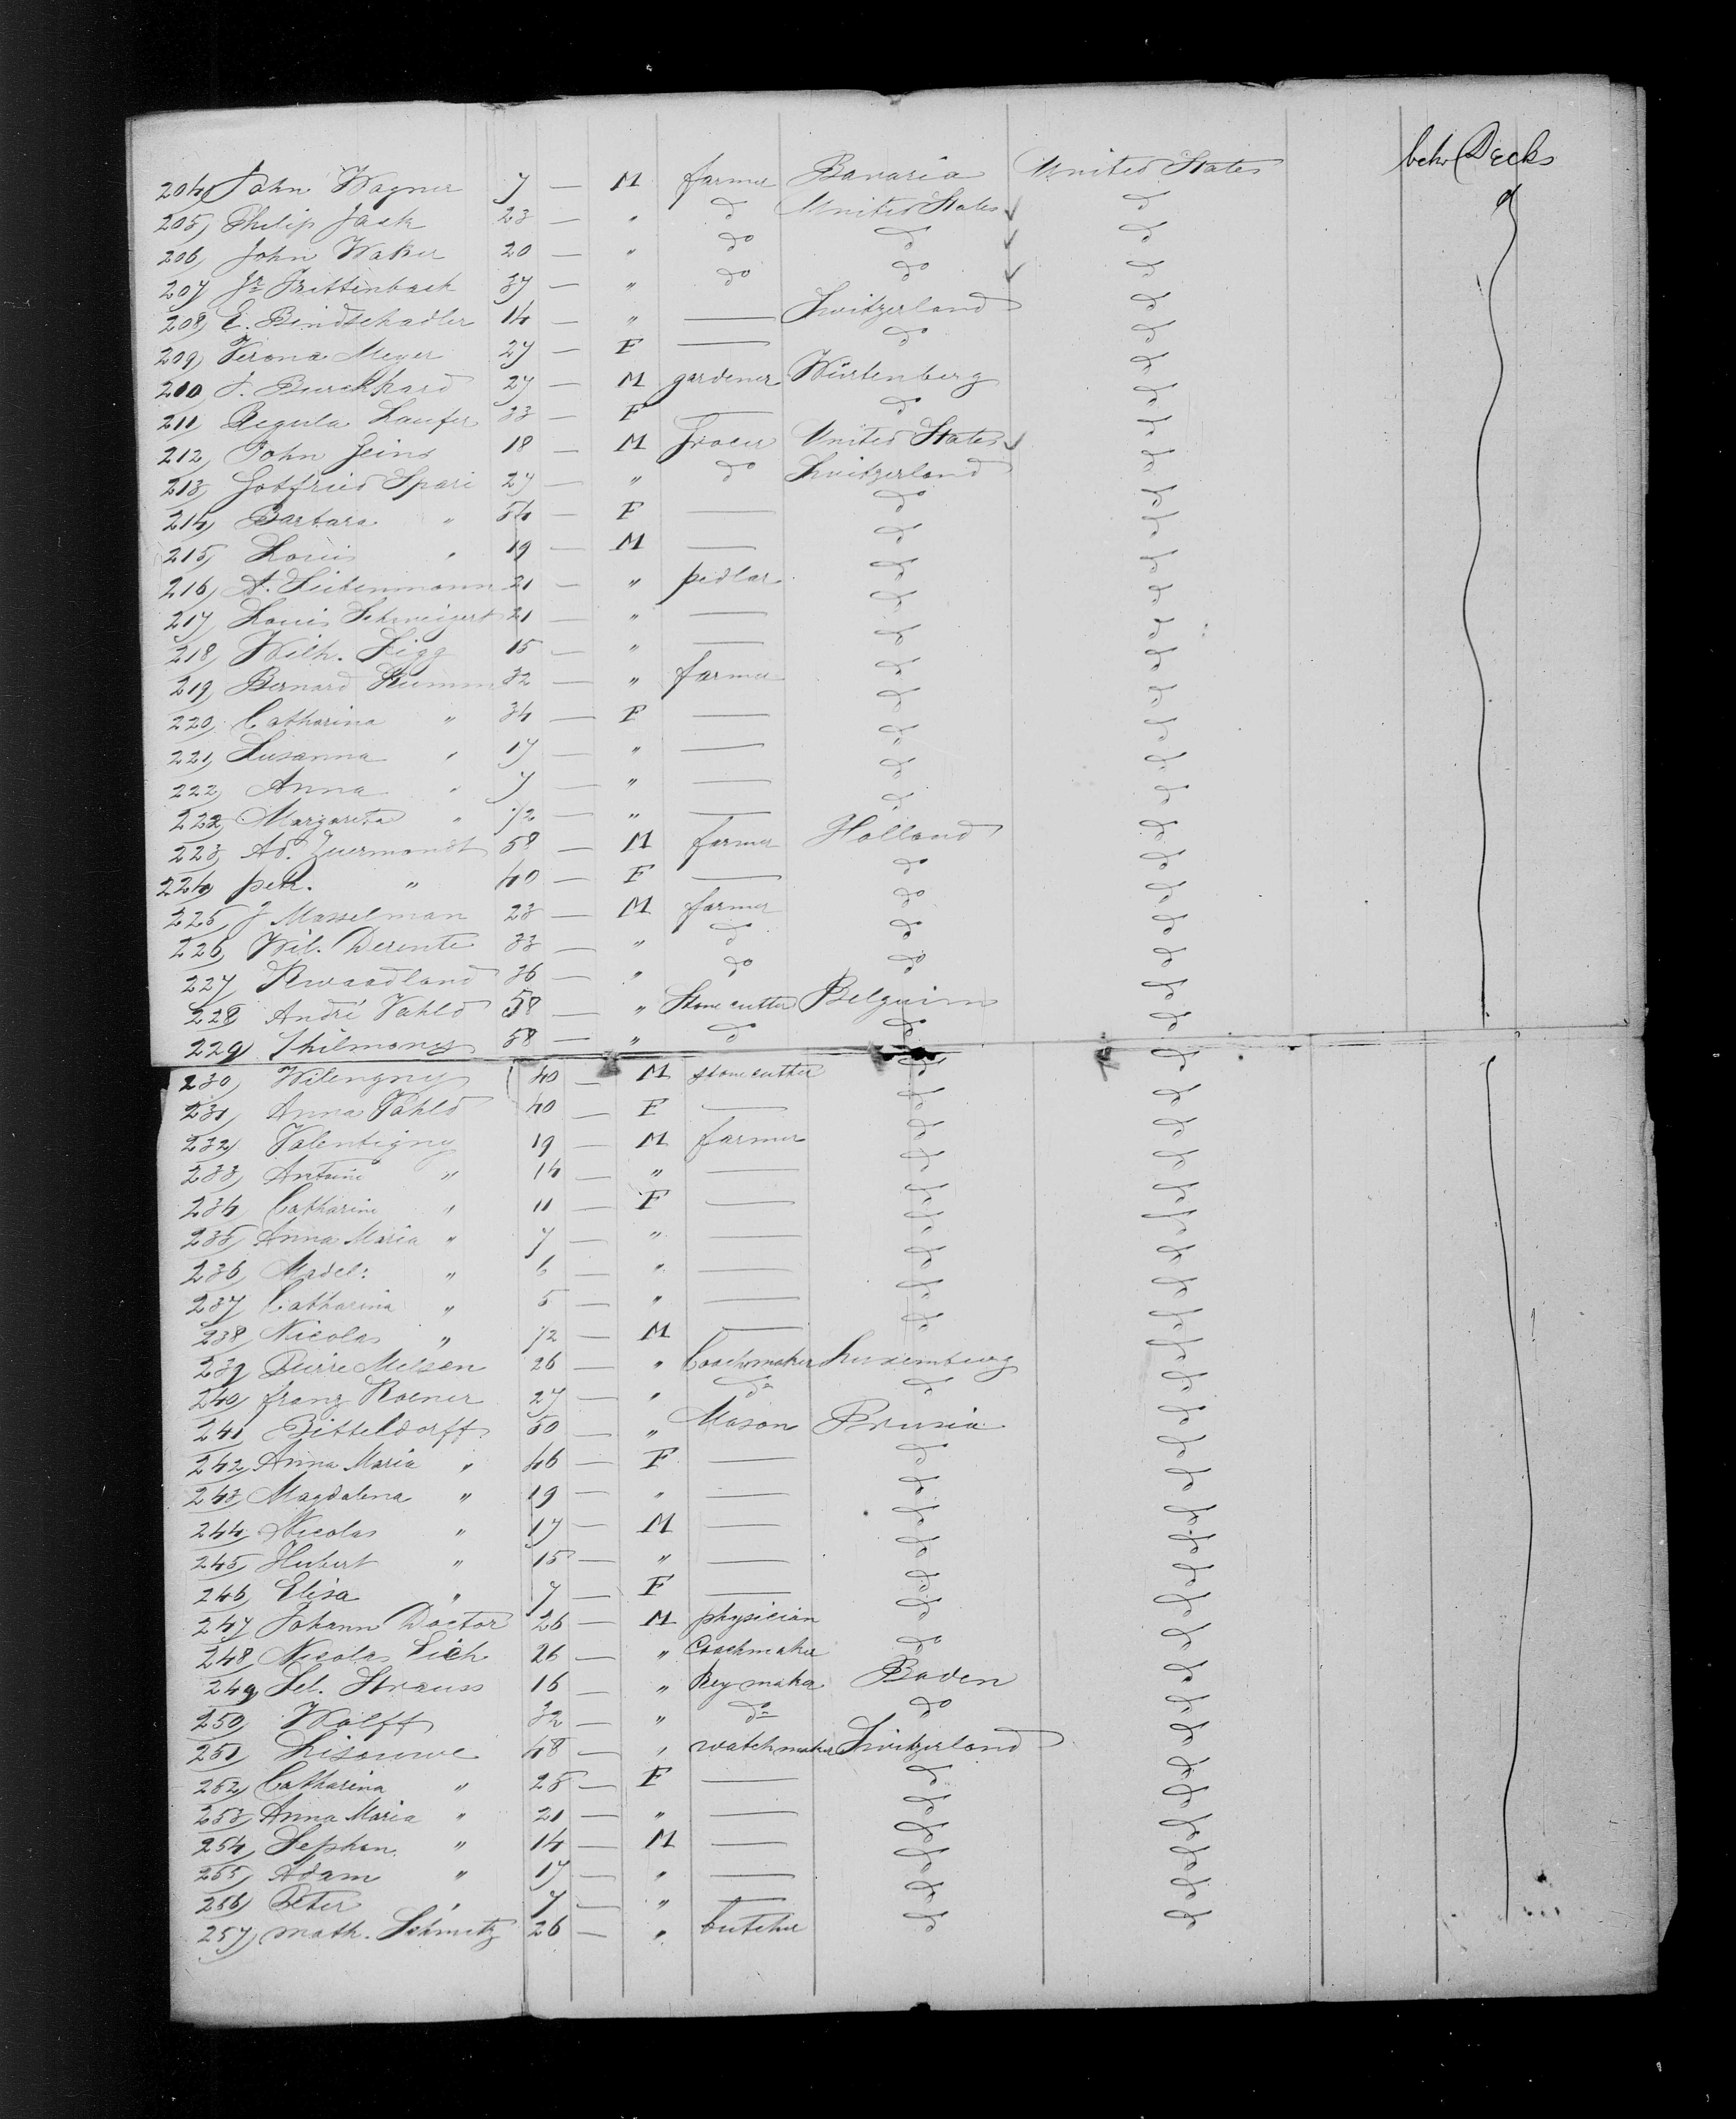 betw Decks
204) John Wagner 7 — M farmer Bavaria United States
205) Philip Jack 23 — " do United States do do
206) John Waker 20 — " do do do
207) Jr Trittenbach 37 — " do do do
208) E. Bindschadler 14 — " — Switzerland do
209) Verona Meyer 27 — F — do do
210 J. Burckhard 27 — M gardener Würtenberg do
211) Regula Laufer 33 — F — do do
212) John Jeins 18 — M Grocer United States do
213) Gottfried Spari 27 — " do Switzerland do
214) Barbara " 54 — F — do do
215) Louis " 19 — M — do do
216) A. Liebenmann 21 — " pedlar do do
217) Louis Schweigert 21 — " — do do
218) Wilh. Figg 15 — " — do do
219) Bernard Kumm 32 — " farmer do do
220) Catharina " 34 — F — do do
221) Susanna " 17 — " — do do
222) Anna " 7 — " — do do
222) Margareta " 1/2 — " — do do
223) Ad. Zuermondt 58 — M farmer Holland do
224) petr. " 40 — F — do do
225) J Masselman 23 — M farmer do do
226) Wil. Derente 33 — " do do do
227) Rwaadland 36 — " do do do
228) André Vahld 58 — " Stone cutter Belguim do
229) Thilmany 58 — " do do do
230) Wilengny 40 — M stone cutter do do
231) Anna Vahld 40 — F — do do
232) Valentigny 19 — M farmer do do
233) Antoine " 14 — " — do do
234) Catharine " 11 — F — do do
235) Anna Maria " 7 — " — do do
236) Madel: " 6 — " — do do
237) Catharina " 5 — " — do do
238) Nicolas " 1/2 — M — do do
239 Pierre Melsen 26 — " Coachmaker Luxemburg do
240) franz Roener 27 — " do do do
241) Bitteldorff 50 — " Mason Prusia do
242) Anna Maria " 46 — F — do do
243) Magdalena " 19 — " — do do
244) Nicolas " 17 — M — do do
245) Hubert " 15 — " — do do
246) Elisa " 7 — F — do do
247) Johann Doctor 26 — M physician do do
248) Nicolas Lich 26 — " Coachmaker do do
249) Sel. Strauss 16 — " Key maker Baden do
250) Wolff 32 — " do do do
251) Lisouwe 48 — " watchmaker Switzerland do
252) Catharina " 25 — F — do do
253) Anna Maria " 21 — " — do do
254) Sephan " 14 — M — do do
255) Adam " 17 — " — do do
256) Peter " 7 — " — do do
257) math. Schmitz 26 — " butcher do do